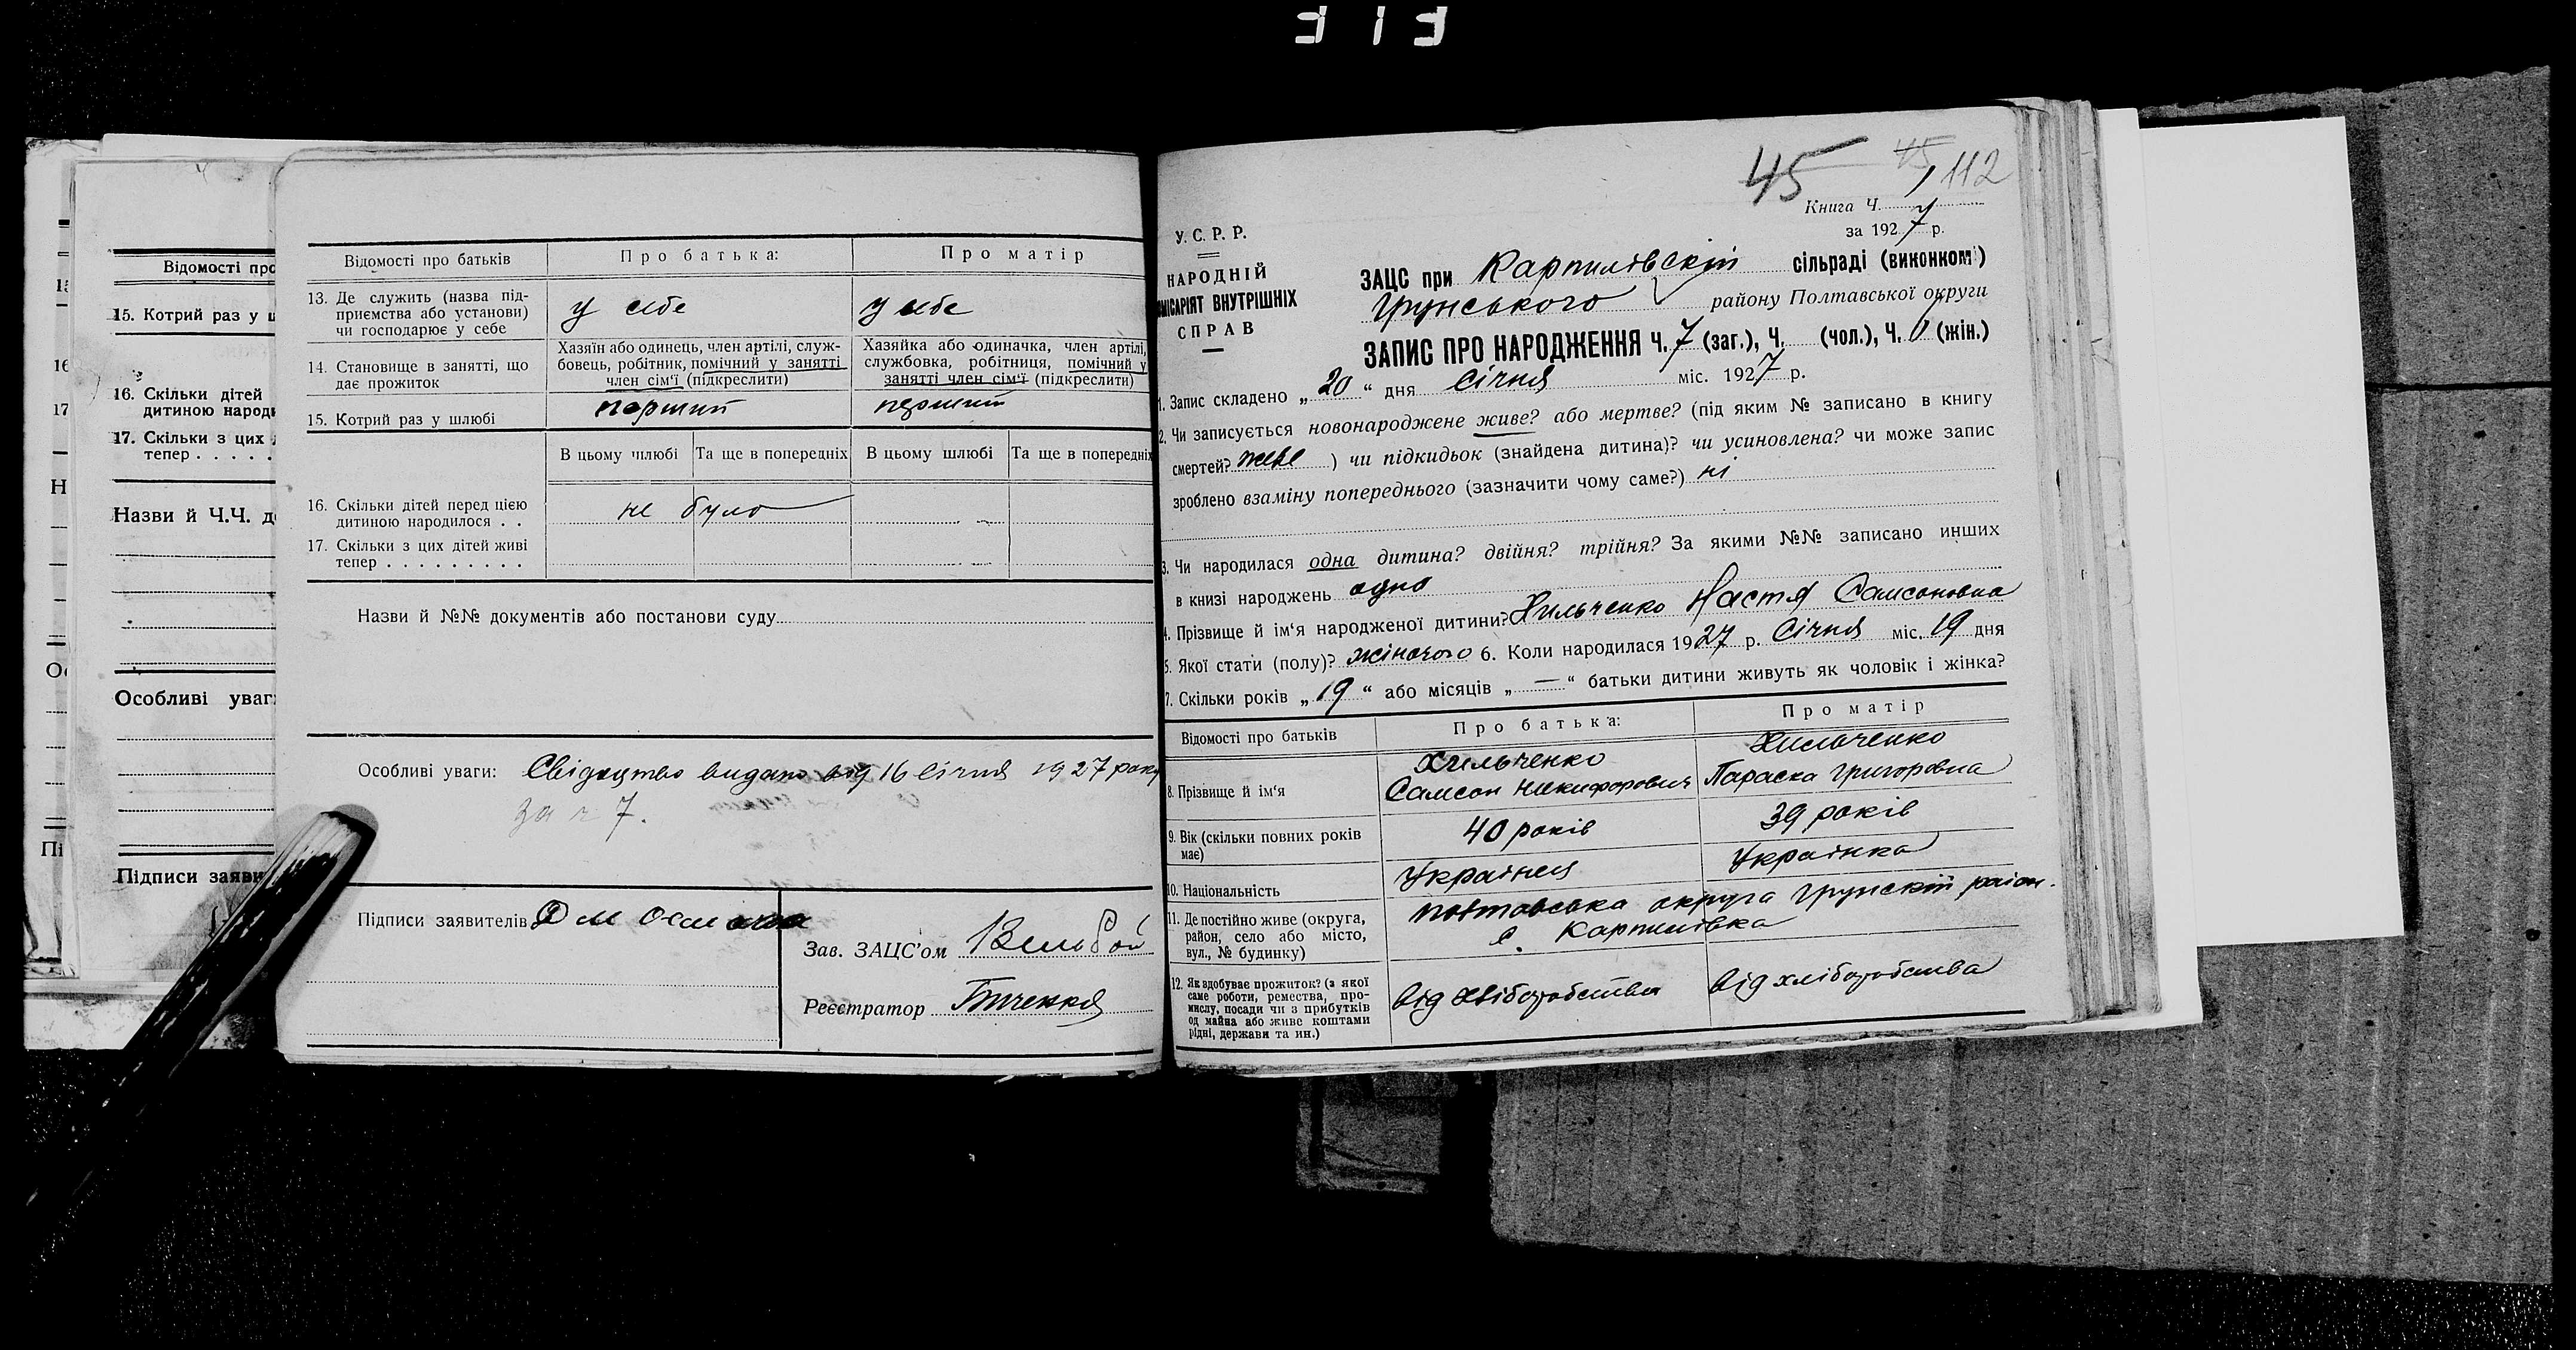 313
Відомості про
15. Котрий раз у ш
16. Скільки дітей
дитиною народи
17. Скільки з цих
тепер . . . . .
Назви й Ч.Ч. д
Особливі уваг
Підписи заяви
Відомості про батьків
Про батька:
Про матір
13. Де служить (назва під-
приємства або установи)
чи господарює у себе
у себе
у себе
14. Становище в занятті, що
дає прожиток
Хазяїн або одинець, член артілі, служ-
бовець, робітник, помічний у занятті
член сім'ї (підкреслити)
Хазяйка або одиначка, член артілі,
службовка, робітниця, помічний у
занятті член сім'ї (підкреслити)
15. Котрий раз у шлюбі
перший
перший
В цьому шлюбі
Та ще в попередніх
В цьому шлюбі
Та ще в попередніх
16. Скільки дітей перед цією
дитиною народилося . .
не було
17. Скільки з цих дітей живі
тепер . . . . . . . . .
Назви й №№ документів або постанови суду
Особливі уваги: Свідоцтво видано від 16 Січня 1927 року
за ч 7.
Підписи заявителів
Зав. ЗАЦС'ом
Реєстратор
45 45 112
Книга Ч.
за 1927 р.
У. С. Р. Р.
НАРОДНІЙ
КОМІСАРІЯТ ВНУТРІШНІХ
СПРАВ
ЗАЦС при Карпилівскій сільраді (виконкомі)
Грунського району Полтавської округи
ЗАПИС ПРО НАРОДЖЕННЯ Ч. 7 (заг.), Ч. (чол.), Ч. (жін.)
1. Запис складено „20“ дня Січня міс. 1927 р.
2. Чи записується новонароджене живе? або мертве? (під яким № записано в книгу
смертей? живе ) чи підкидьок (знайдена дитина)? чи усиновлена? чи може запис
зроблено взаміну попереднього (зазначити чому саме?) ні
3. Чи народилася одна дитина? двійня? трійня? За якими №№ записано инших
в книзі народжень одно
4. Прізвище й ім'я народженої дитини? Хильченко Настя Самсоновна
5. Якої стати (полу)? жіночого 6. Коли народилася 1927 р. Січня міс. 19 дня
7. Скільки років „19“ або місяців „—“ батьки дитини живуть як чоловік і жінка?
Відомості про батьків
Про батька:
Про матір
8. Прізвище й ім'я
Хильченко
Самсон Никифорович
Хильченко
Параска Григоровна
9. Вік (скільки повних років
має)
40 років
39 років
10. Національність
Українец
Українка
11. Де постійно живе (округа,
район, село або місто,
вул., № будинку)
Повтавська округа Грунскій район.
с. Карпилівка
12. Як здобуває прожиток? (з якої
саме роботи, ремества, про-
мислу, посади чи з прибутків
од майна або живе коштами
рідні, держави та ин.)
від хліборобства
від хліборобства